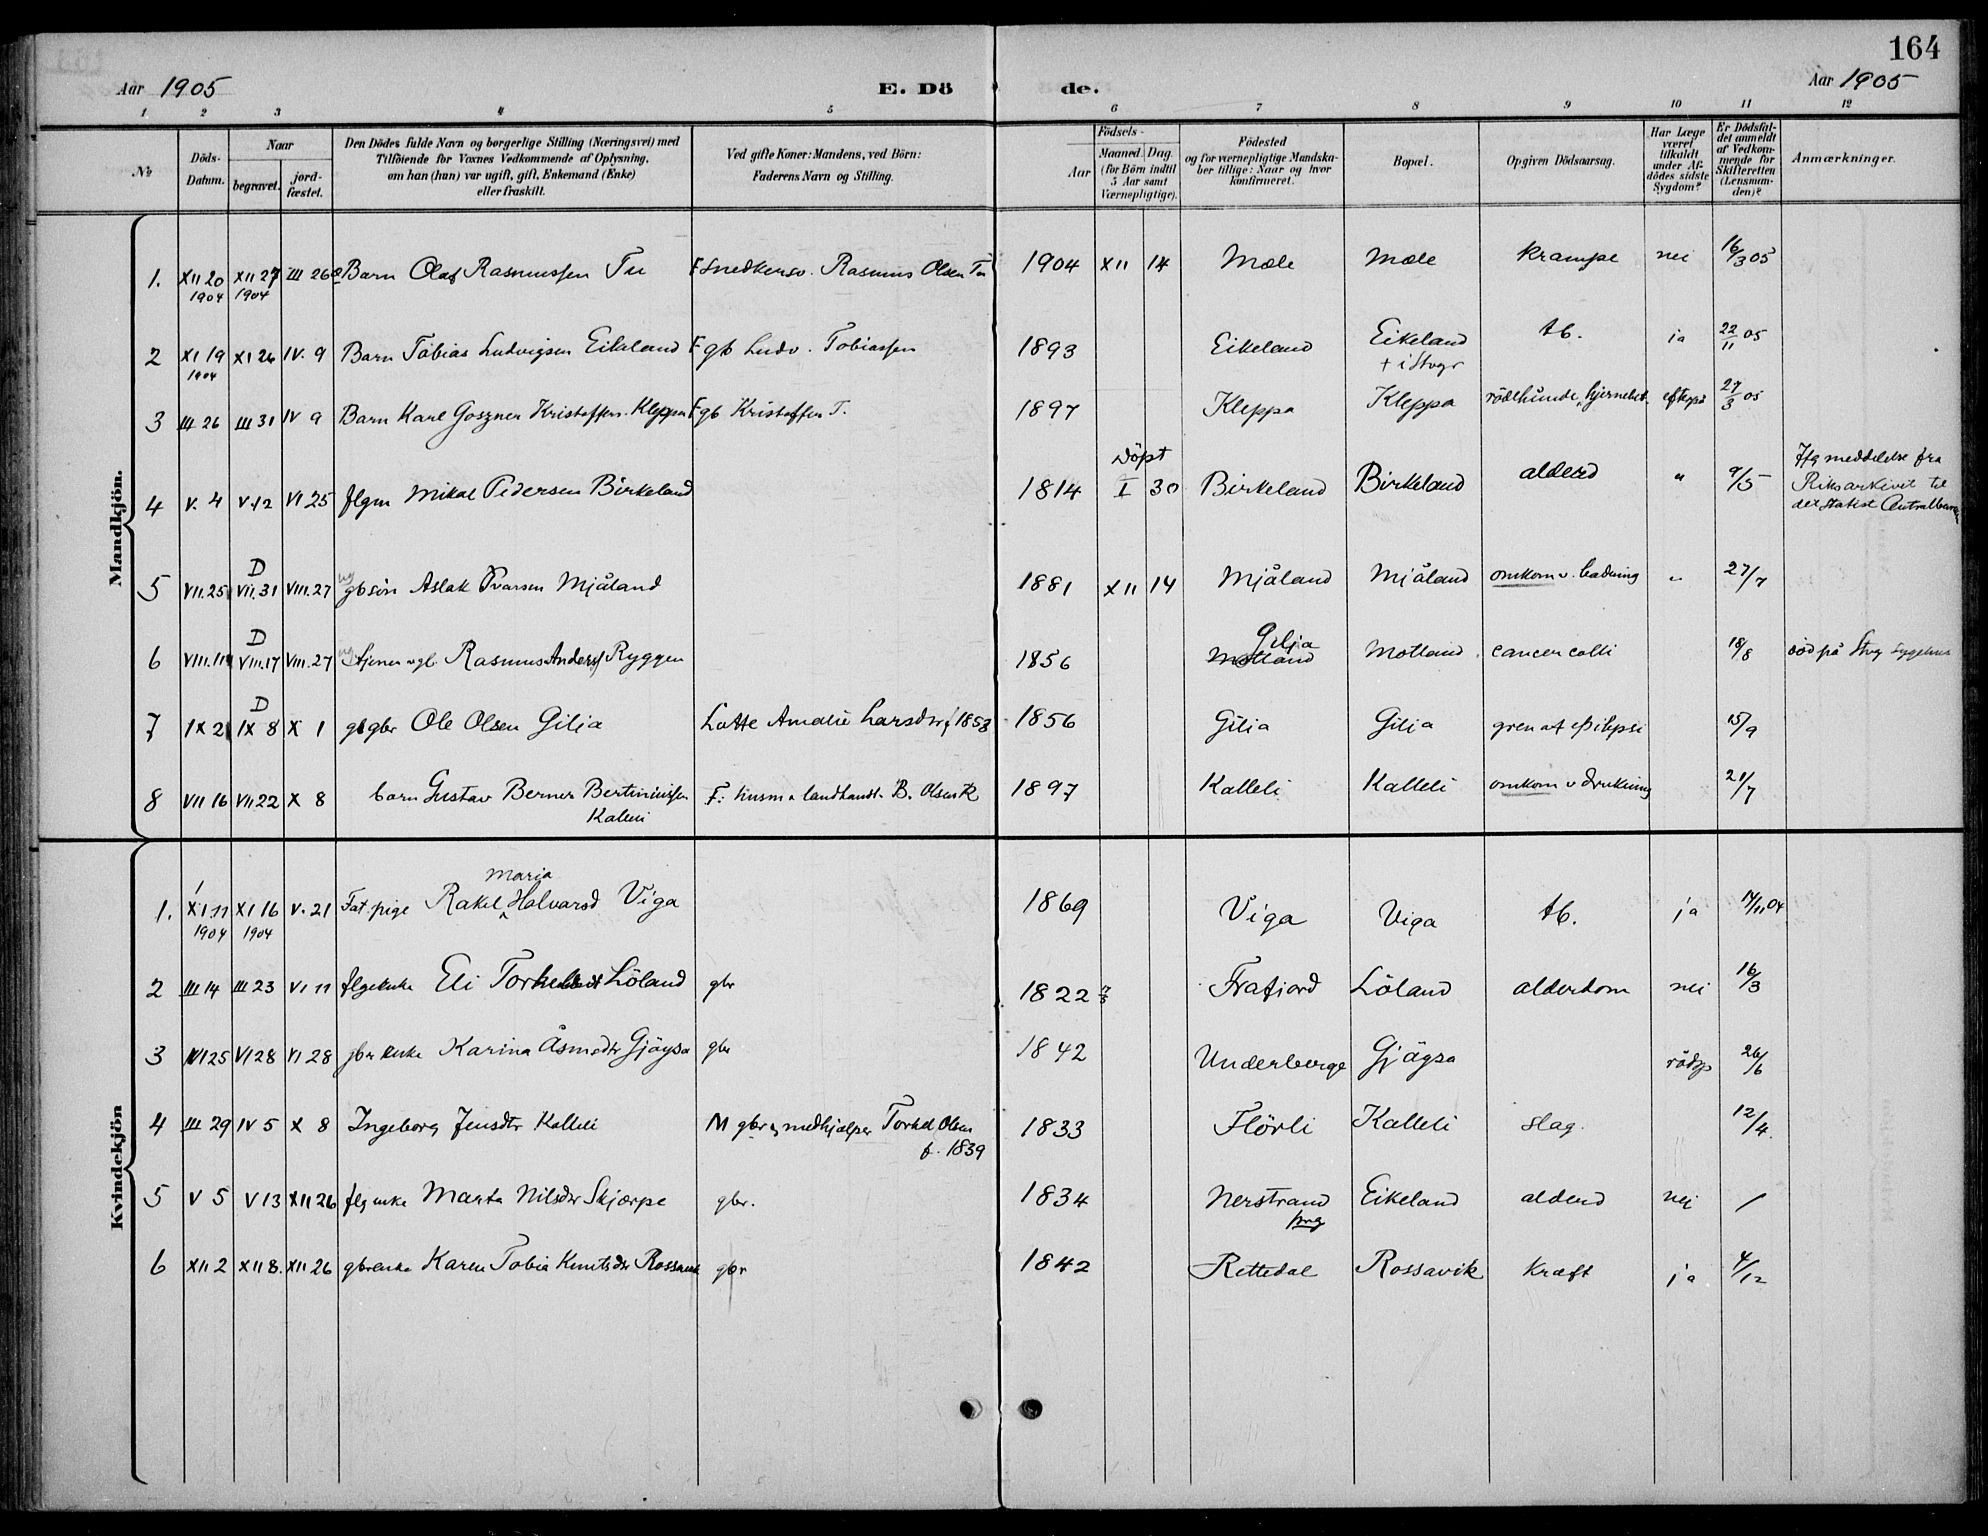 164
Aar 1905 E. Dö de. Aar 1905
1 2 3 4 5 6 7 8 9 10 11 12
No
Döds-Datum.
Naar
begravet. jord-fæstet.
Den Dödes fulde Navn og borgerlige Stilling (Næringsvei) med
Tilföiende for Voxnes Vedkommende af Oplysning,
om han (hun) var ugift, gift, Enkemand (Enke)
eller fraskilt.
Ved gifte Koner: Mandens, ved Börn:
Faderens Navn og Stilling.
Födsels-
Aar Maaned. Dag.
(for Börn indtil
5 Aar samt
Værnepligtige).
Födested
og for værnepligtige Mandska-
ber tillige: Naar og hvor
konfirmeret.
Bopæl.
Opgiven Dödsaarsag.
Har Læge
været
tilkaldt
under Af-
dödes sidste
Sygdom?
Er Dödsfal-
det anmeldt
af Vedkom-
mende for
Skifteretten
(Lensman-
den)?
Anmærkninger.
Mandkjön.
1. XII 20 1904 XII 27 1904 III 26 Barn Olaf Rasmussen Tu F Snedkersv. Rasmus Olsen Tu 1904 XII 14 Mæle Mæle krampe nei 16/3 05
2 XI 19 1904 XI 26 IV. 9 Barn Tobias Ludvigsen Eikeland F gb Ludv. Tobiassen 1893 Eikeland Eikeland + i Stvgr tb. ja 22/11 05
3 III 26 III 31 IV 9 Barn Karl Goszner Kristoffers. Kleppa F gb Kristoffer T. 1897 Kleppa Kleppa rödehunde, hjernebet. efterpå 27/3 05
4 V. 4 V. 12 VI 25 flgm Mikal Pedersen Birkeland 1814 Döpt I 30 Birkeland Birkeland alderd " 9/5 Ifg meddelelse fra
Riksarkivet til
det statist Centralbureau
5 VII. 25 D VII. 31 VIII. 27 ug gbsön Aslak Ivarsen Mjåland 1881 XII 14 Mjåland Mjåland omkom v. badning " 27/7
6 VIII. 11 D VIII. 17 VIII. 27 ug tjener gb. Rasmus Anders Ryggen 1856 Motland Gilja Motland cancer colli 18/8 död på Stvg Sygehus
7 IX 2 D IX 8 X 1 gbr Ole Olsen Gilja Lotte Amalie Larsdtr f 1853 1856 Gilja Gilja gren af epilepsi 15/9
8 VII 16 VII 22 X 8 barn Gustav Berner Bertiniussen Kalleli F: husm & landhandl. B. Olsen K 1897 Kalleli Kalleli omkom v drukning 21/7
Kvindekjön
1. XI 11 1904 XI 16 1904 V. 21 Fat. pige Rakel Maria Halvarsd Viga 1869 Viga Viga tb. ja 14/11 04
2 III 14 III 23 VI 11 flgenke Eli Torkelsdt Löland gbr 1822 7/3 Frafjord Löland alderdom nei 16/3
3 VI 25 VI 28 VI 28 gbr enke Karina Åsmdtr Gjöysa gbr 1842 Underberge Gjögsa rådsp 26/6
4 III 29 IV 5 X 8 Ingeborg Jensdtr Kalleli M gbr & medhjælper Torkel Olsen f. 1839 1833 Flörli Kalleli slag 12/4.
5 V 5 V 13 XII 26 flg enke Marta Nilsdtr Skjærpe gbr. 1834 Nerstrand prg Eikeland alderd nei /
6 XII 2 XII 8. XII 26 gbrenke Karen Tobia Knutsdtr Rossavik gbr 1842 Rettedal Rossavik kræft ja 4/12